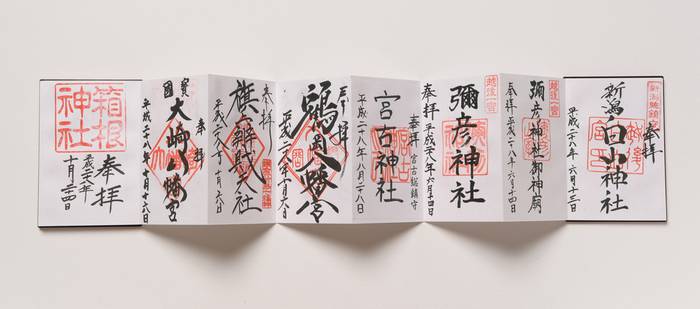 奉拝
新潟総鎮守
新潟白山神社
平成二十八年 六月十三日
越後一宮
彌彦神社御神廟
奉拝 平成二十八年六月十四日
越後一宮
彌彦神社
奉拝 平成二十八年六月十四日
奉拝 宮古総鎮守
宮古神社
平成二十八年八月二十八
鶴岡八幡宮
平成二十八年十月六日
奉拝
旗上辨財天社
平成二十八年十月六日
奉拝
大崎八幡宮
國寳
平成二十八年十月十六日
箱根神社
奉拝
十月二四日